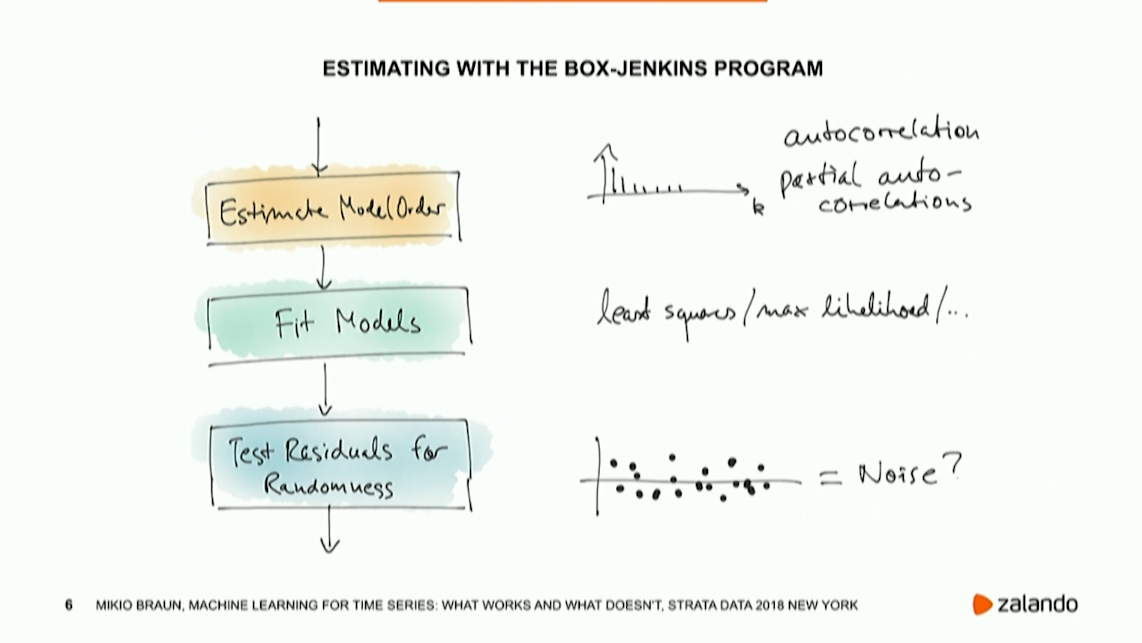 ESTIMATING WITH THE BOX-JENKINS PROGRAM
Estimate Model Order
autocorrelation
partial auto-
correlations
k
Fit Models
least squares/max likelihood/...
Test Residuals for
Randomness
= Noise?
6 MIKIO BRAUN, MACHINE LEARNING FOR TIME SERIES: WHAT WORKS AND WHAT DOESN'T, STRATA DATA 2018 NEW YORK
zalando